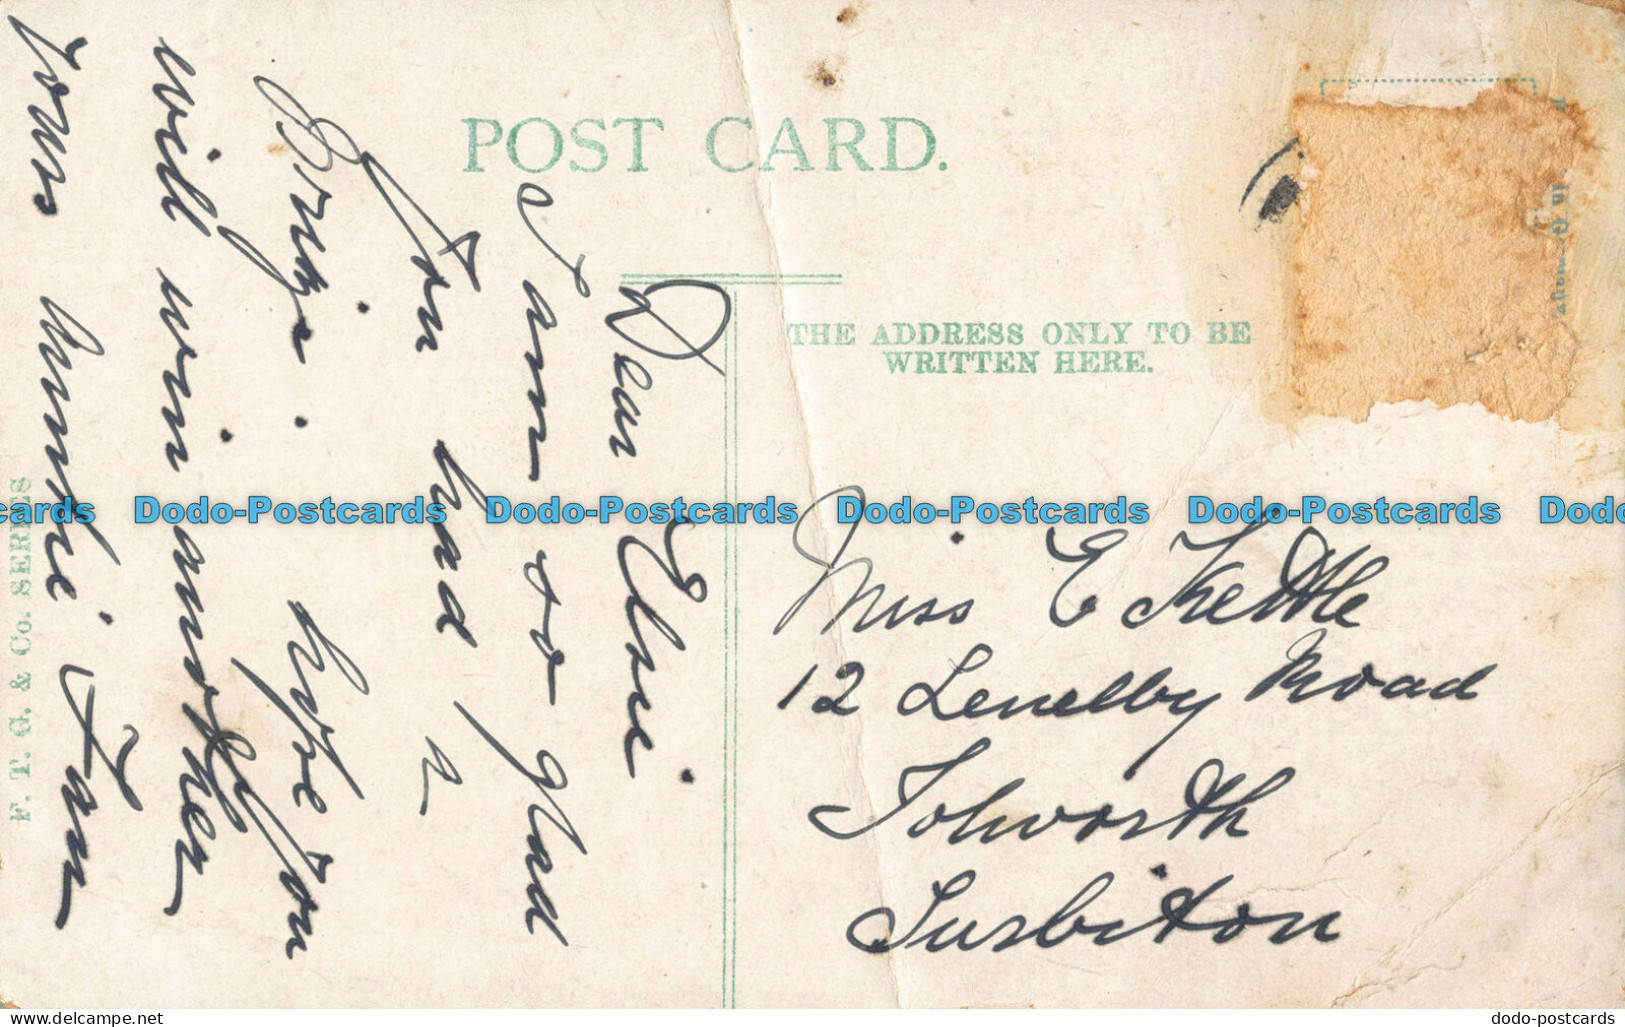 POST CARD.
THE ADDRESS ONLY TO BE
WRITTEN HERE.
Dear Elsie
I am so glad
you had a
Brize. hope you
will win another
yours Winnie Fam
Miss E Kettle
12 Lenelby Road
Tolworth
Surbiton
F. T. G. & Co. SERIES
Dodo-Postcards Dodo-Postcards Dodo-Postcards Dodo-Postcards
www.delcampe.net
dodo-postcards